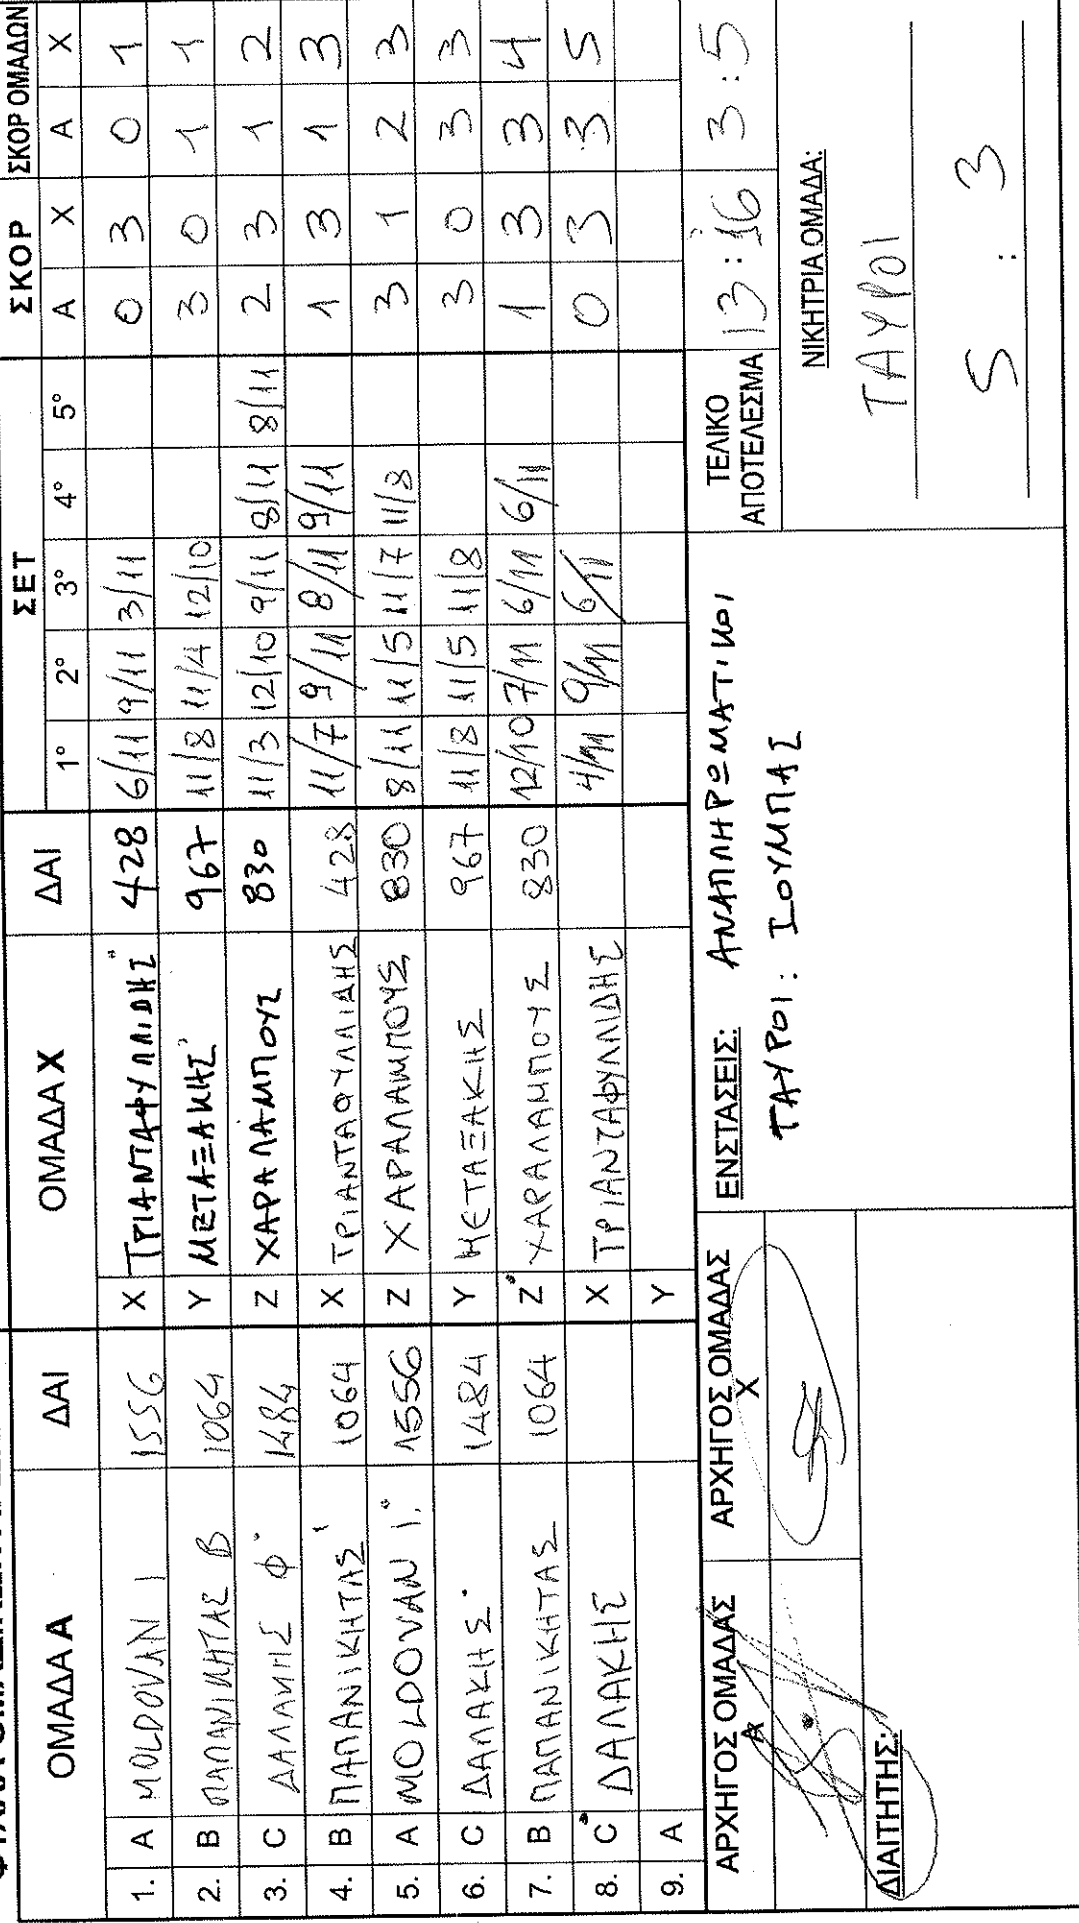 ΟΜΑΔΑ Α ΔΑΙ ΟΜΑΔΑ Χ ΔΑΙ ΣΕΤ ΣΚΟΡ ΣΚΟΡ ΟΜΑΔΩΝ
1° 2° 3° 4° 5° Α Χ Α Χ
1. A MOLDOVAN I 1556 X ΤΡΙΑΝΤΑΦΥΛΛΙΔΗΣ 428 6/11 9/11 3/11 0 3 0 1
2. B ΠΑΠΑΝΙΚΗΤΑΣ Β 1064 Y ΜΕΤΑΞΑΚΗΣ 967 11/8 11/4 12/10 3 0 1 1
3. C ΔΑΛΑΚΗΣ Φ 1484 Z ΧΑΡΑΛΑΜΠΟΥΣ 830 11/3 12/10 9/11 8/11 8/11 2 3 1 2
4. B ΠΑΠΑΝΙΚΗΤΑΣ 1064 X ΤΡΙΑΝΤΑΦΥΛΛΙΔΗΣ 428 11/7 9/11 8/11 9/11 1 3 1 3
5. A MOLDOVAN I. 1556 Z ΧΑΡΑΛΑΜΠΟΥΣ 830 8/11 11/5 11/7 11/8 3 1 2 3
6. C ΔΑΛΑΚΗΣ 1484 Y ΜΕΤΑΞΑΚΗΣ 967 11/8 11/5 11/8 3 0 3 3
7. B ΠΑΠΑΝΙΚΗΤΑΣ 1064 Z ΧΑΡΑΛΑΜΠΟΥΣ 830 12/10 7/11 6/11 6/11 1 3 3 4
8. C ΔΑΛΑΚΗΣ X ΤΡΙΑΝΤΑΦΥΛΛΙΔΗΣ 4/11 9/11 6/11 0 3 3 5
9. A Y
ΑΡΧΗΓΟΣ ΟΜΑΔΑΣ Α
ΑΡΧΗΓΟΣ ΟΜΑΔΑΣ Χ
ΔΙΑΙΤΗΤΗΣ:
ΕΝΣΤΑΣΕΙΣ: ΑΝΑΠΛΗΡΩΜΑΤΙΚΟΙ
ΤΑΥΡΟΙ: ΙΟΥΜΠΑΣ
ΤΕΛΙΚΟ ΑΠΟΤΕΛΕΣΜΑ 13:16 3:5
ΝΙΚΗΤΡΙΑ ΟΜΑΔΑ:
ΤΑΥΡΟΙ
5 : 3